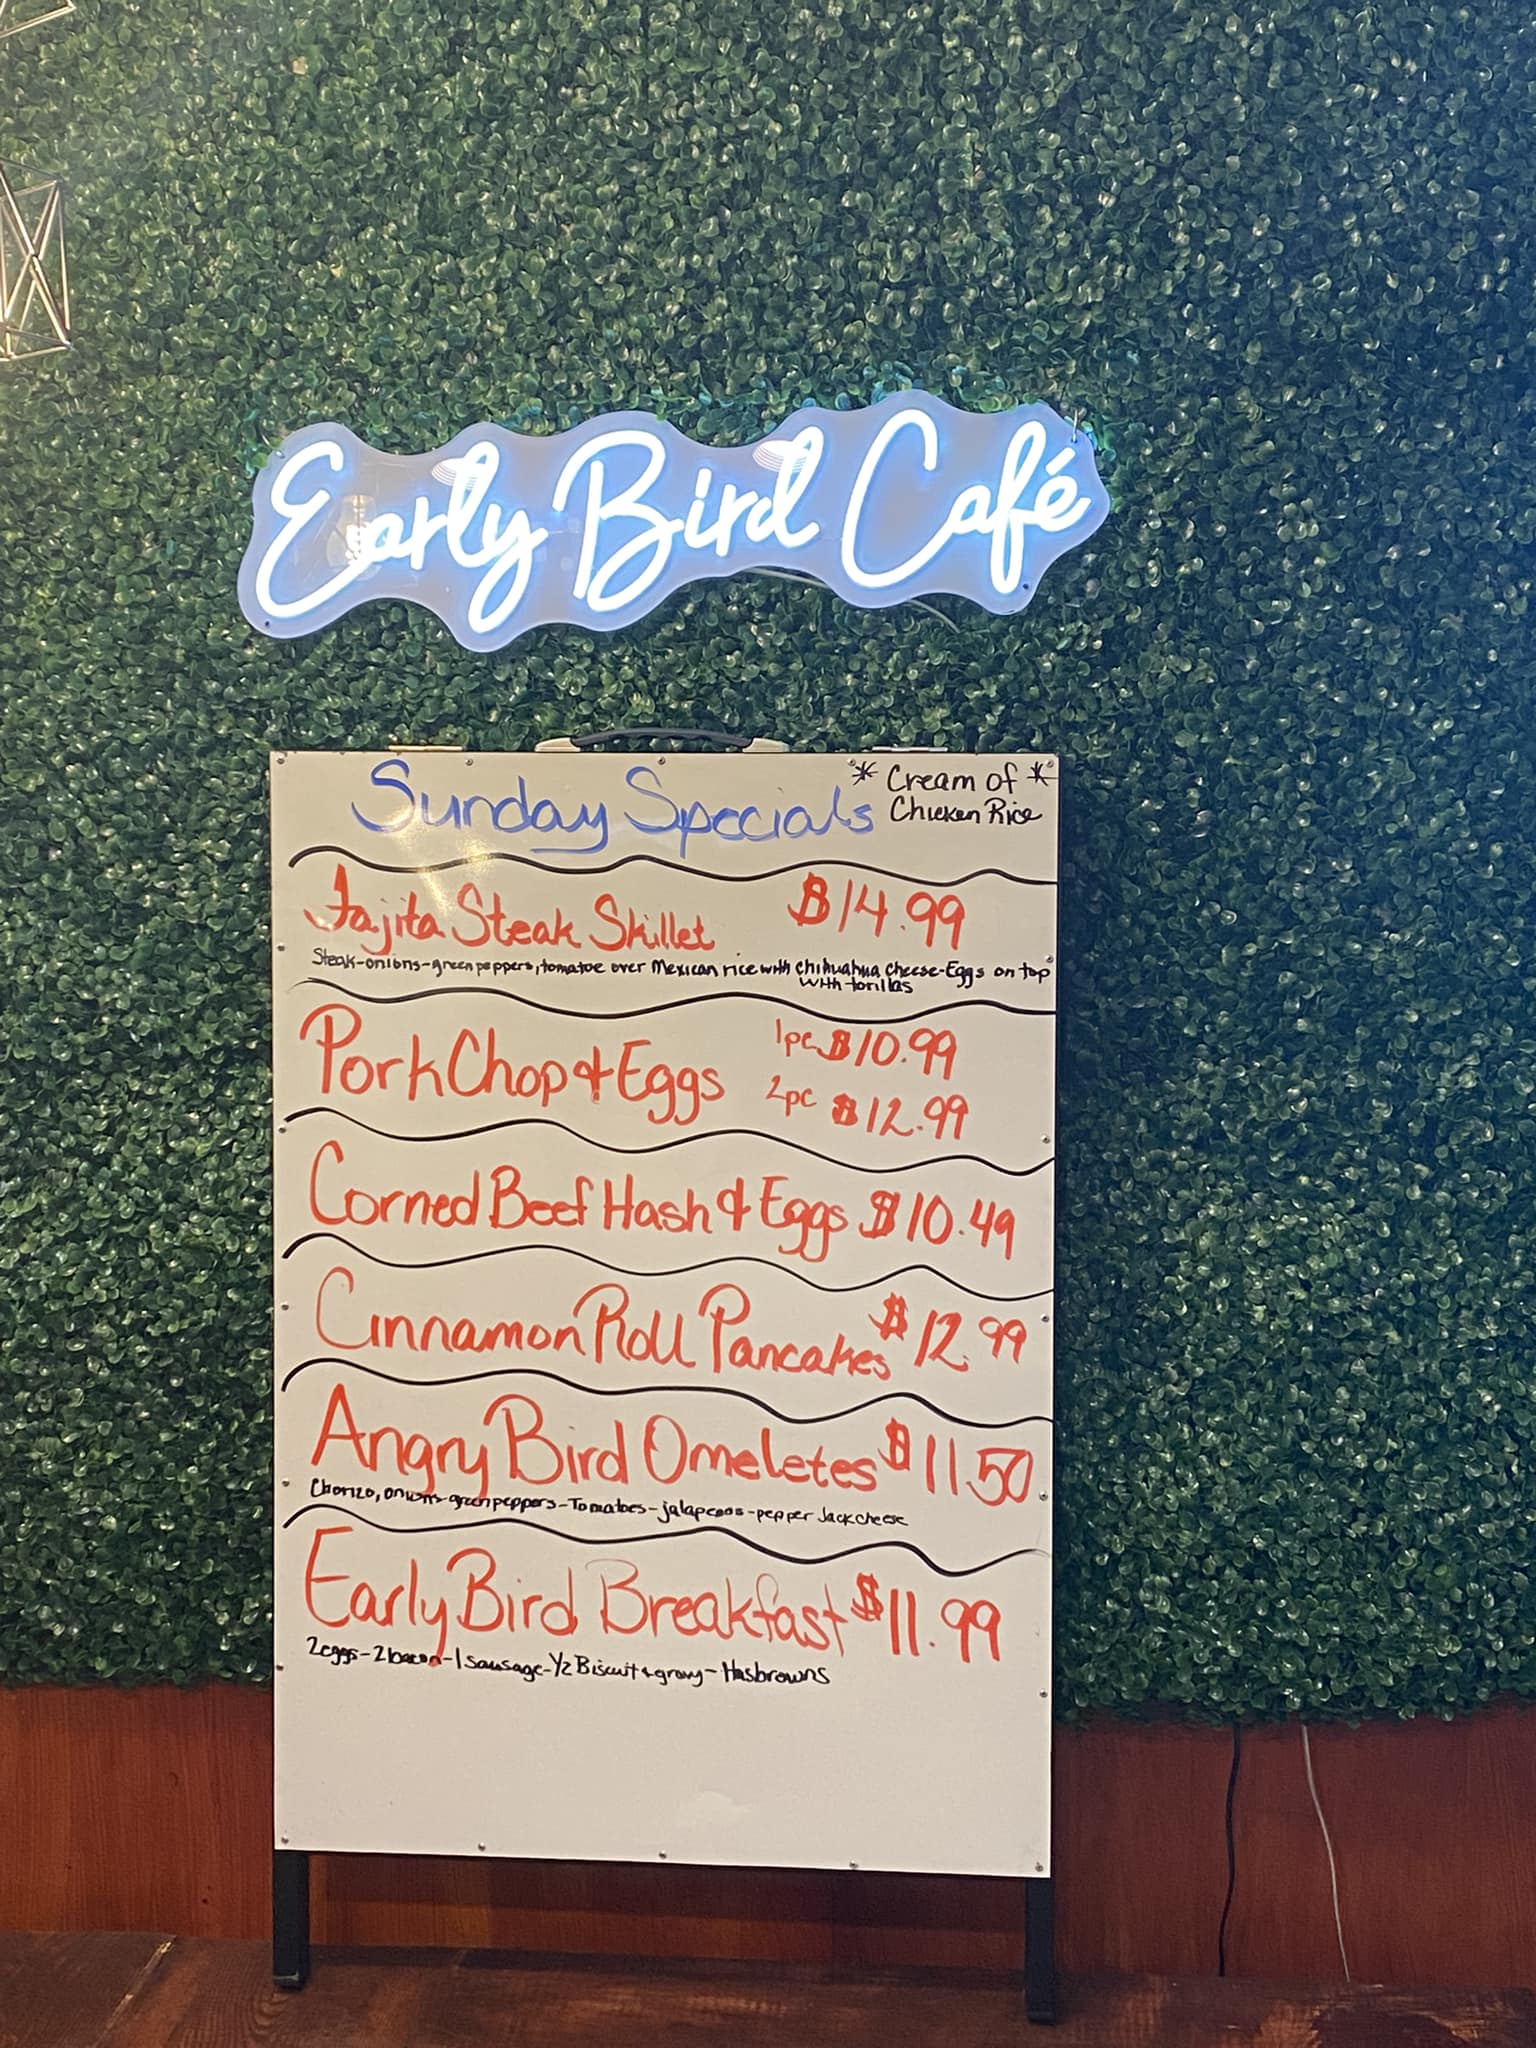 Early Bird Café
Sunday Specials
* Cream of *
Chicken Rice
Fajita Steak Skillet $14.99
Steak-onions-green peppers, tomatoe over Mexican rice with Chihuahua Cheese-Eggs on top
with torillas
Pork Chop & Eggs
1pc $10.99
2pc $12.99
Corned Beef Hash & Eggs $10.49
Cinnamon Roll Pancakes $12.99
Angry Bird Omeletes $11.50
Chorizo, onions-green peppers-Tomatoes-jalapenos-pepper Jack cheese
Early Bird Breakfast $11.99
2 eggs-2 bacon-1 sausage-1/2 Biscuit & gravy-Hasbrowns